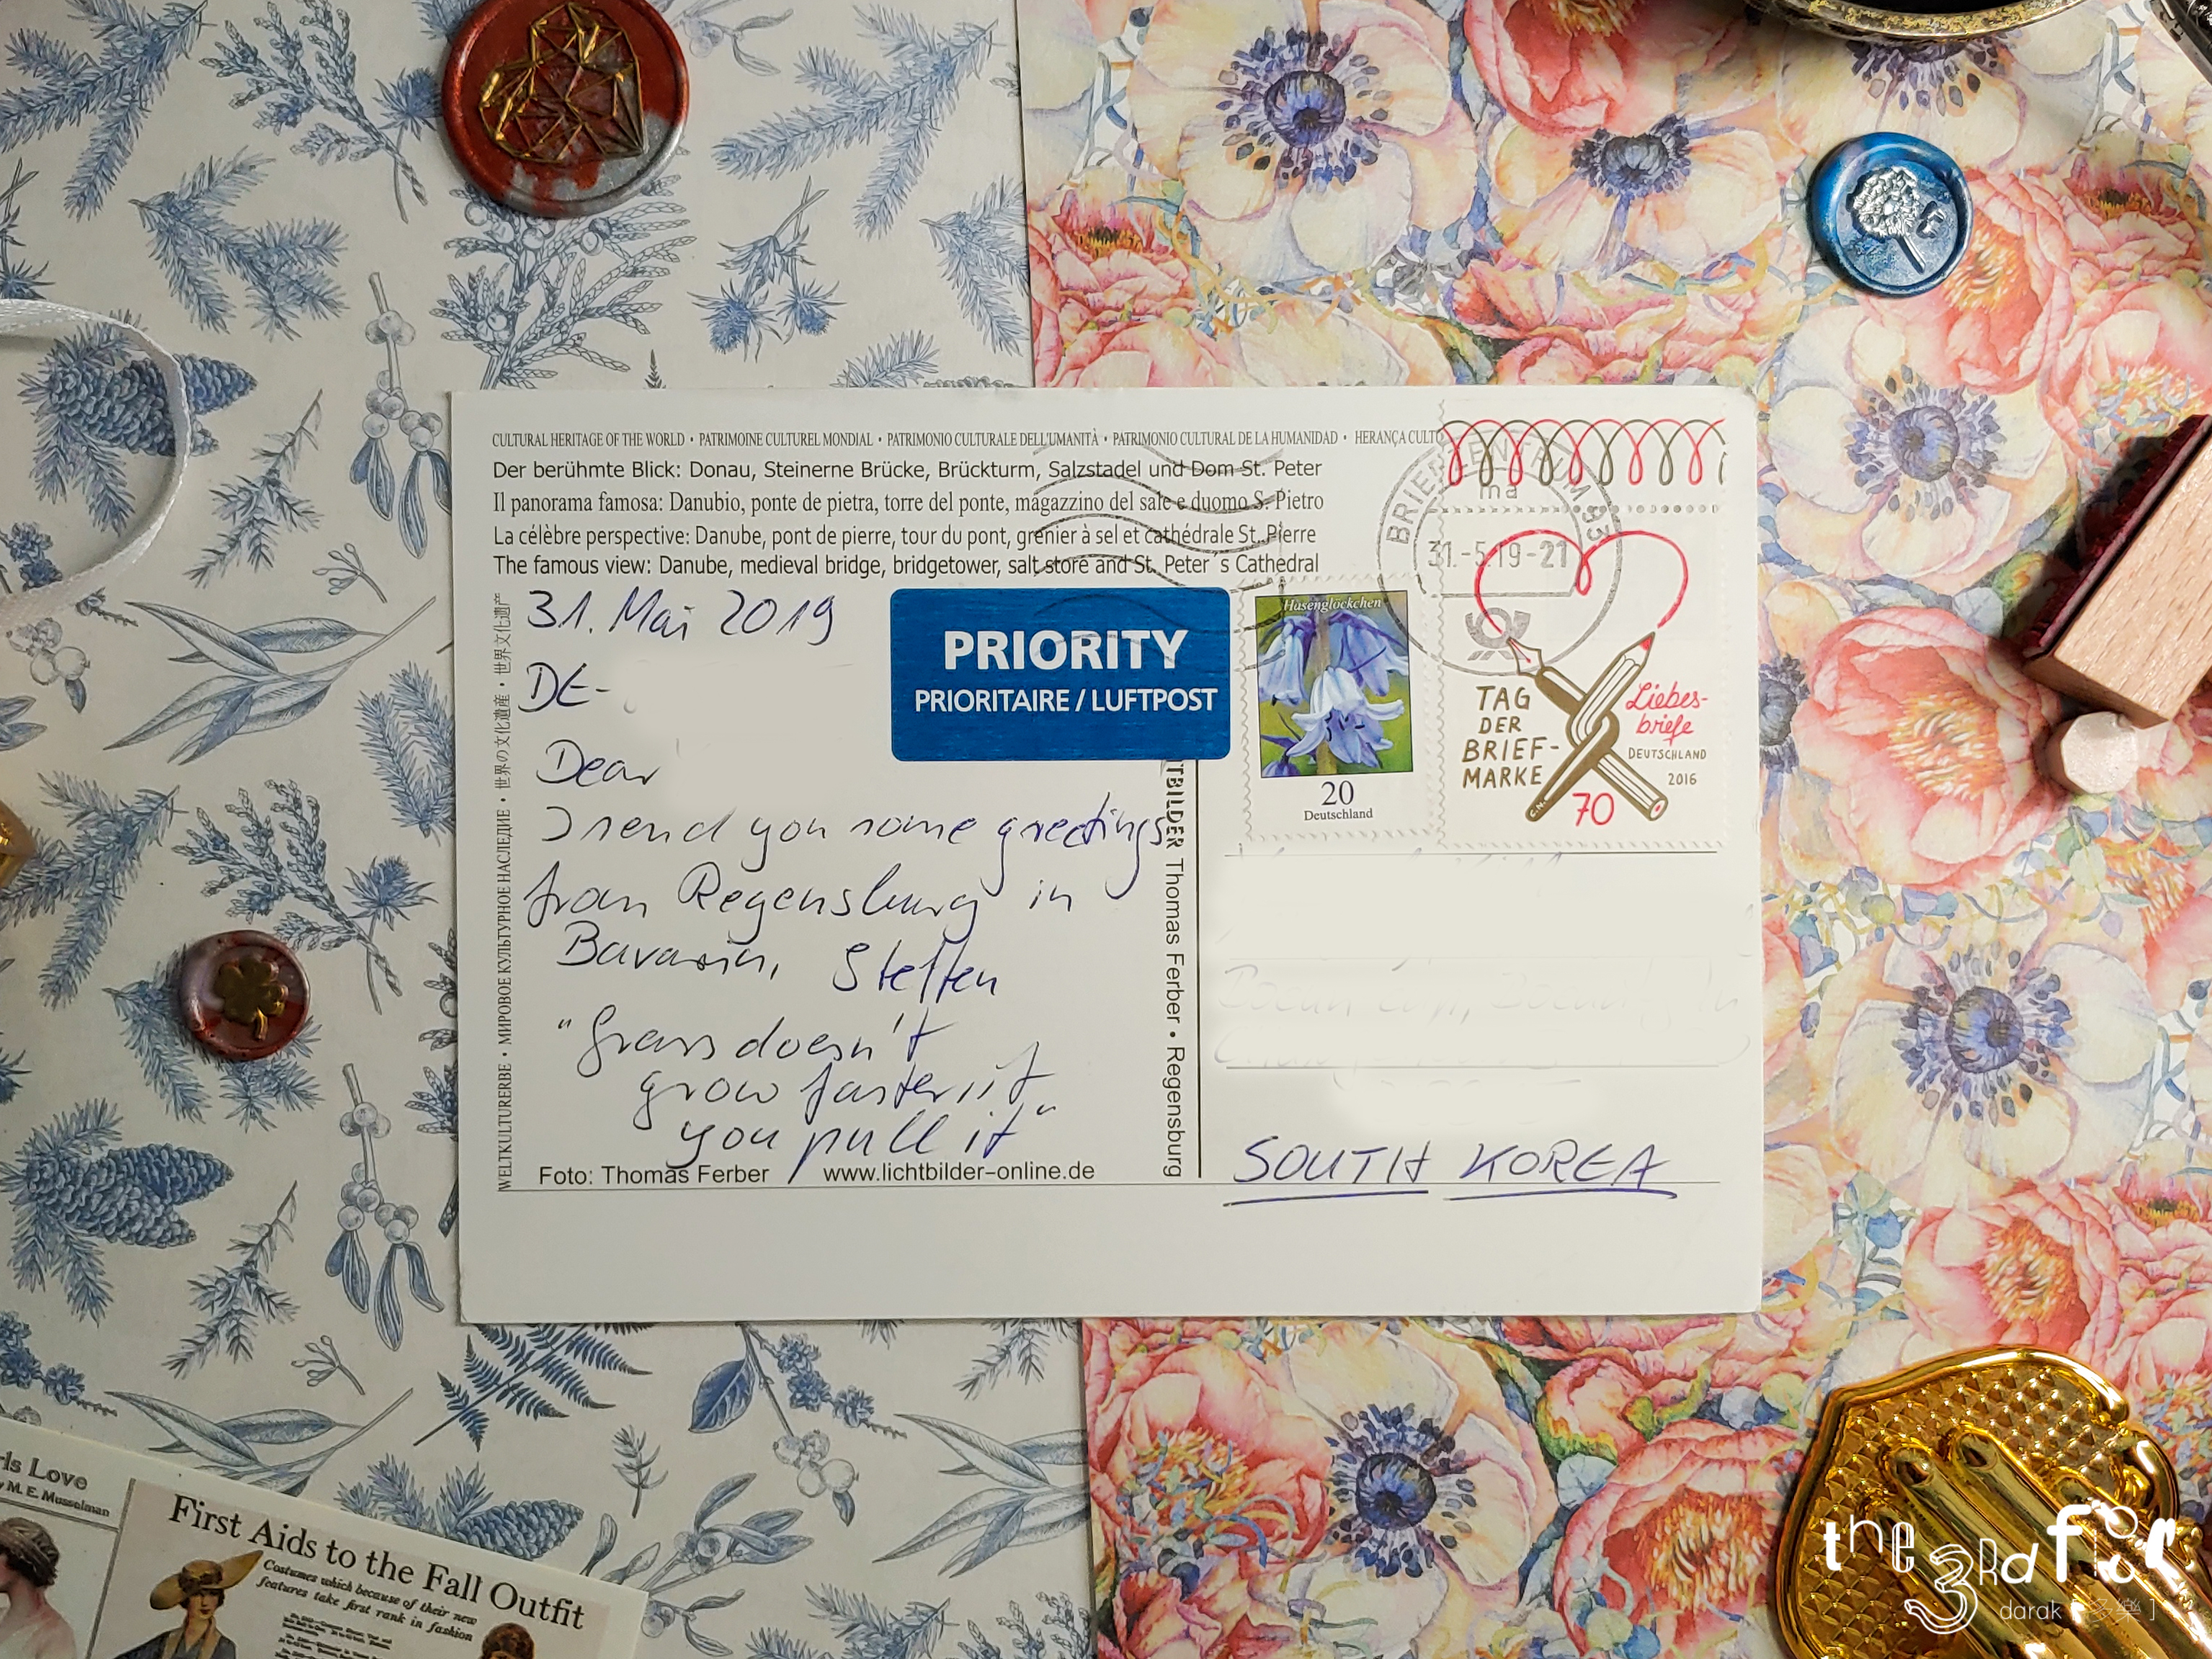 CULTURAL HERITAGE OF THE WORLD • PATRIMOINE CULTUREL MONDIAL • PATRIMONIO CULTURALE DELL'UMANITÀ • PATRIMONIO CULTURAL DE LA HUMANIDAD • HERANÇA CULTO
Der berühmte Blick: Donau, Steinerne Brücke, Brückturm, Salzstadel und Dom St. Peter
Il panorama famosa: Danubio, ponte de pietra, torre del ponte, magazzino del sale e duomo S. Pietro
La célèbre perspective: Danube, pont de pierre, tour du pont, grenier à sel et cathédrale St. Pierre
The famous view: Danube, medieval bridge, bridgetower, salt store and St. Peter´s Cathedral
WELTKULTURERBE • МИРОВОЕ КУЛЬТУРНОЕ НАСЛЕДИЕ • 世界の文化遺産 • 世界文化遗产
31. Mai 2019
DE-
Dear
I send you some greetings
from Regensburg in
Bavaria, Steffen
"Grass doesn't
grow faster if
you pull it"
Foto: Thomas Ferber www.lichtbilder-online.de
TBILDER Thomas Ferber • Regensburg
PRIORITY
PRIORITAIRE / LUFTPOST
Hasenglöckchen
20
Deutschland
BRIEFZENTRUM 93
ma
31.-5.19-21
TAG
DER
BRIEF-
MARKE
Liebes-
briefe
DEUTSCHLAND
2016
70
SOUTH KOREA
rls Love
y M. E. Musselman
First Aids to the Fall Outfit
Costumes which because of their new
features take first rank in fashion
the 3rd floor
darak [多樂]